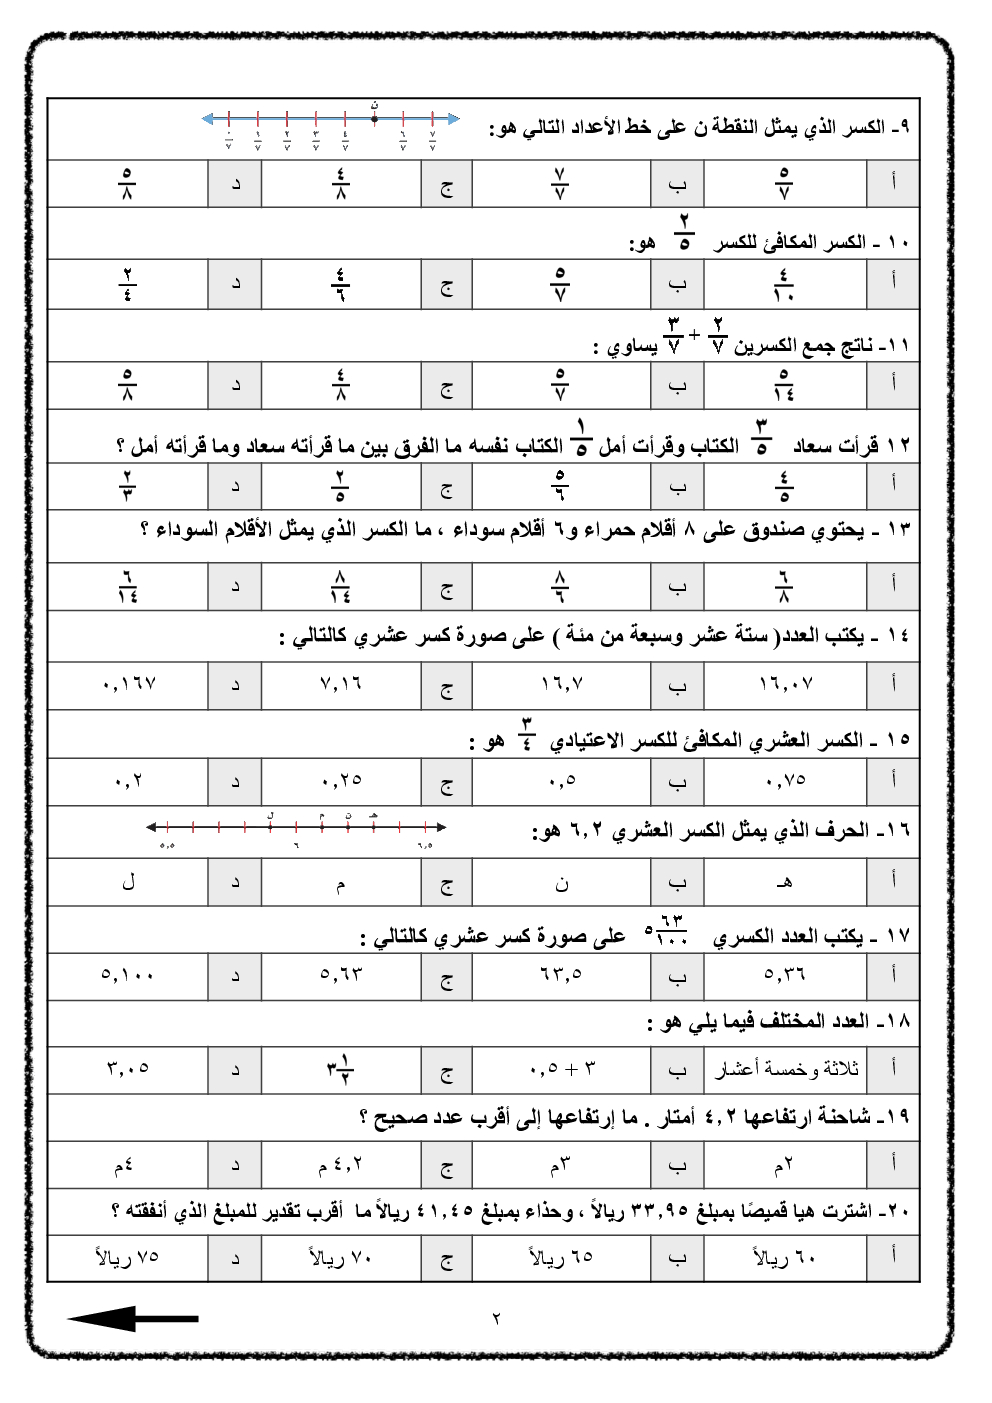 ٩- الكسر الذي يمثل النقطة ن على خط الأعداد التالي هو: ن ٠/٧ ١/٧ ٢/٧ ٣/٧ ٤/٧ ٦/٧ ٧/٧
أ ٥/٧ ب ٧/٧ ج ٤/٨ د ٥/٨
١٠ - الكسر المكافئ للكسر ٢/٥ هو:
أ ٤/١٠ ب ٥/٧ ج ٤/٦ د ٢/٤
١١- ناتج جمع الكسرين ٢/٧ + ٣/٧ يساوي :
أ ٥/١٤ ب ٥/٧ ج ٤/٨ د ٥/٨
١٢ قرأت سعاد ٣/٥ الكتاب وقرأت أمل ١/٥ الكتاب نفسه ما الفرق بين ما قرأته سعاد وما قرأته أمل ؟
أ ٤/٥ ب ٥/٦ ج ٢/٥ د ٢/٣
١٣ - يحتوي صندوق على ٨ أقلام حمراء و٦ أقلام سوداء ، ما الكسر الذي يمثل الأقلام السوداء ؟
أ ٦/٨ ب ٨/٦ ج ٨/١٤ د ٦/١٤
١٤ - يكتب العدد( ستة عشر وسبعة من مئة ) على صورة كسر عشري كالتالي :
أ ١٦,٠٧ ب ١٦,٧ ج ٧,١٦ د ٠,١٦٧
١٥ - الكسر العشري المكافئ للكسر الاعتيادي ٣/٤ هو :
أ ٠,٧٥ ب ٠,٥ ج ٠,٢٥ د ٠,٢
١٦- الحرف الذي يمثل الكسر العشري ٦,٢ هو: ل م ن هـ ٥,٥ ٦ ٦,٥
أ هـ ب ن ج م د ل
١٧ - يكتب العدد الكسري ٥ ٦٣/١٠٠ على صورة كسر عشري كالتالي :
أ ٥,٣٦ ب ٦٣,٥ ج ٥,٦٣ د ٥,١٠٠
١٨- العدد المختلف فيما يلي هو :
أ ثلاثة وخمسة أعشار ب ٣ + ٠,٥ ج ٣ ١/٢ د ٣,٠٥
١٩- شاحنة ارتفاعها ٤,٢ أمتار . ما إرتفاعها إلى أقرب عدد صحيح ؟
أ ٢م ب ٣م ج ٤,٢ م د ٤م
٢٠- اشترت هيا قميصًا بمبلغ ٣٣,٩٥ ريالاً ، وحذاء بمبلغ ٤١,٤٥ ريالاً ما أقرب تقدير للمبلغ الذي أنفقته ؟
أ ٦٠ ريالاً ب ٦٥ ريالاً ج ٧٠ ريالاً د ٧٥ ريالاً
٢